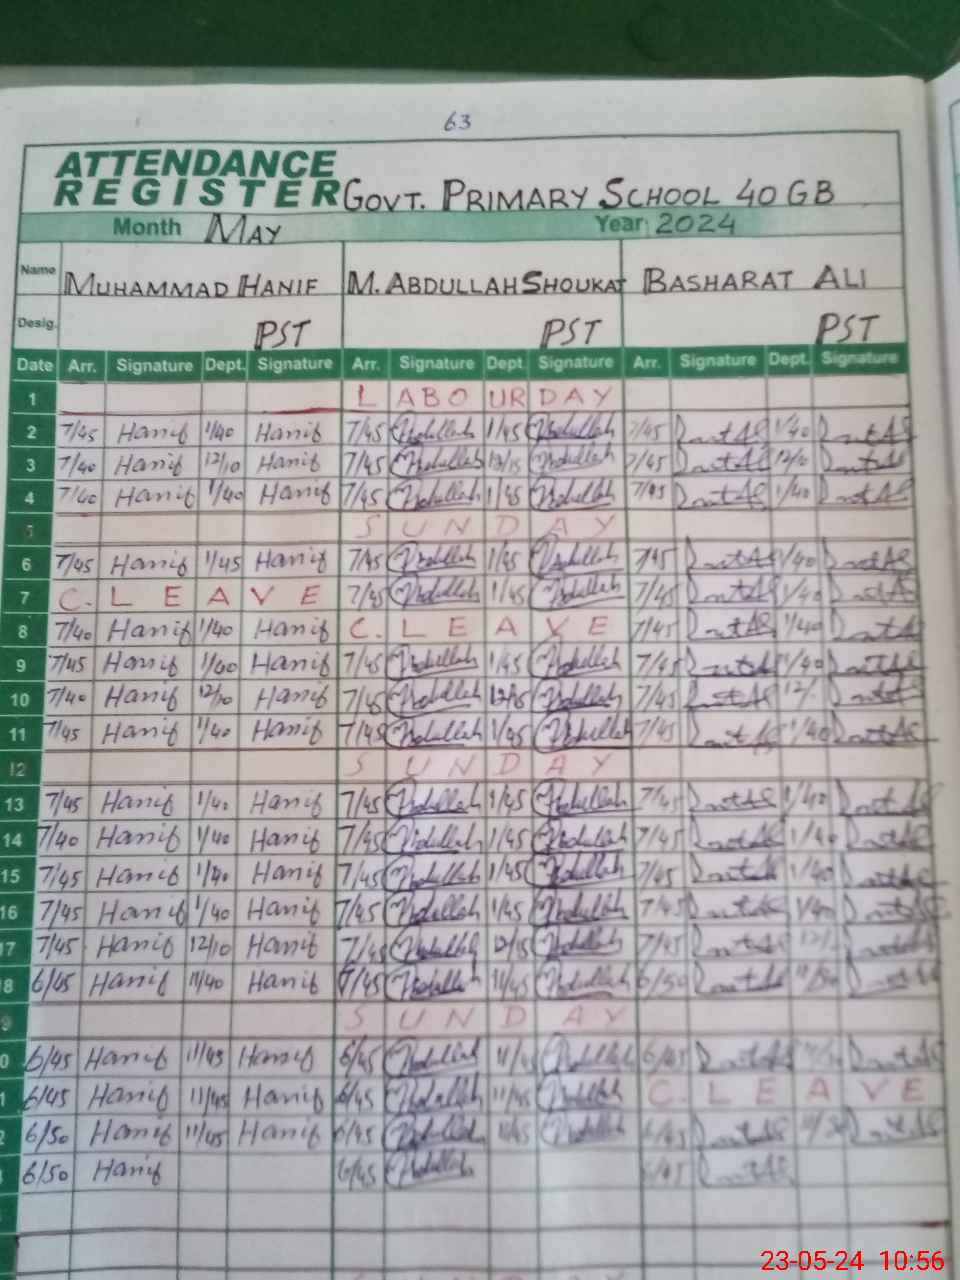 63
ATTENDANCE
REGISTER GOVT. PRIMARY SCHOOL 40 GB
Month MAY Year 2024
Name MUHAMMAD HANIF M. ABDULLAH SHOUKAT BASHARAT ALI
Desig. PST PST PST
Date Arr. Signature Dept. Signature Arr. Signature Dept. Signature Arr. Signature Dept. Signature
1 LABOUR DAY
2 7/45 Hanif 1/40 Hanif 7/45 Abdullah 1/45 Abdullah 7/45 1/40
3 7/40 Hanif 12/10 Hanif 7/45 Abdullah 12/15 Abdullah 7/45
4 7/40 Hanif 1/40 Hanif 7/45 Abdullah 1/45 Abdullah 7/45 1/40
5 SUNDAY
6 7/45 Hanif 1/45 Hanif 7/45 Abdullah 1/45 Abdullah 7/45 1/40
7 C. LEAVE 7/45 Abdullah 1/45 Abdullah 7/45 1/40
8 7/40 Hanif 1/40 Hanif C. LEAVE 7/45 1/40
9 7/45 Hanif 1/40 Hanif 7/45 Abdullah 1/45 Abdullah 7/45 1/40
10 7/40 Hanif 12/10 Hanif 7/45 Abdullah 12/15 Abdullah 7/45
11 7/45 Hanif 1/40 Hanif 7/45 Abdullah 1/45 Abdullah 7/45 1/40
12 SUNDAY
13 7/45 Hanif 1/40 Hanif 7/45 Abdullah 1/45 Abdullah 7/45 1/40
14 7/40 Hanif 1/40 Hanif 7/45 Abdullah 1/45 Abdullah 7/45 1/40
15 7/45 Hanif 1/40 Hanif 7/45 Abdullah 1/45 Abdullah 7/45 1/40
16 7/45 Hanif 1/40 Hanif 7/45 Abdullah 1/45 Abdullah 7/45 1/40
7 7/45 Hanif 12/10 Hanif 7/45 Abdullah 12/15 Abdullah 7/45
8 6/45 Hanif 11/40 Hanif 7/45 Abdullah 11/45 Abdullah 6/50
9 SUNDAY
0 6/45 Hanif 11/45 Hanif 6/45 Abdullah 11/45 Abdullah 6/45
1 6/45 Hanif 11/45 Hanif 6/45 Abdullah 11/45 Abdullah C. LEAVE
2 6/50 Hanif 11/45 Hanif 6/45 Abdullah 11/45 Abdullah 6/45
6/50 Hanif 6/45 Abdullah 6/45
23-05-24 10:56